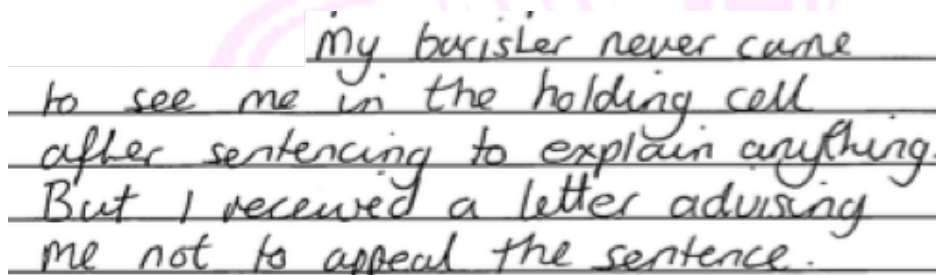 My barister never came
to see me in the holding cell
after sentencing to explain anything.
But I received a letter advising
me not to appeal the sentence.